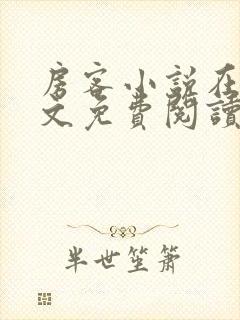 房客小説在
文免費閱讀
半世笙簫